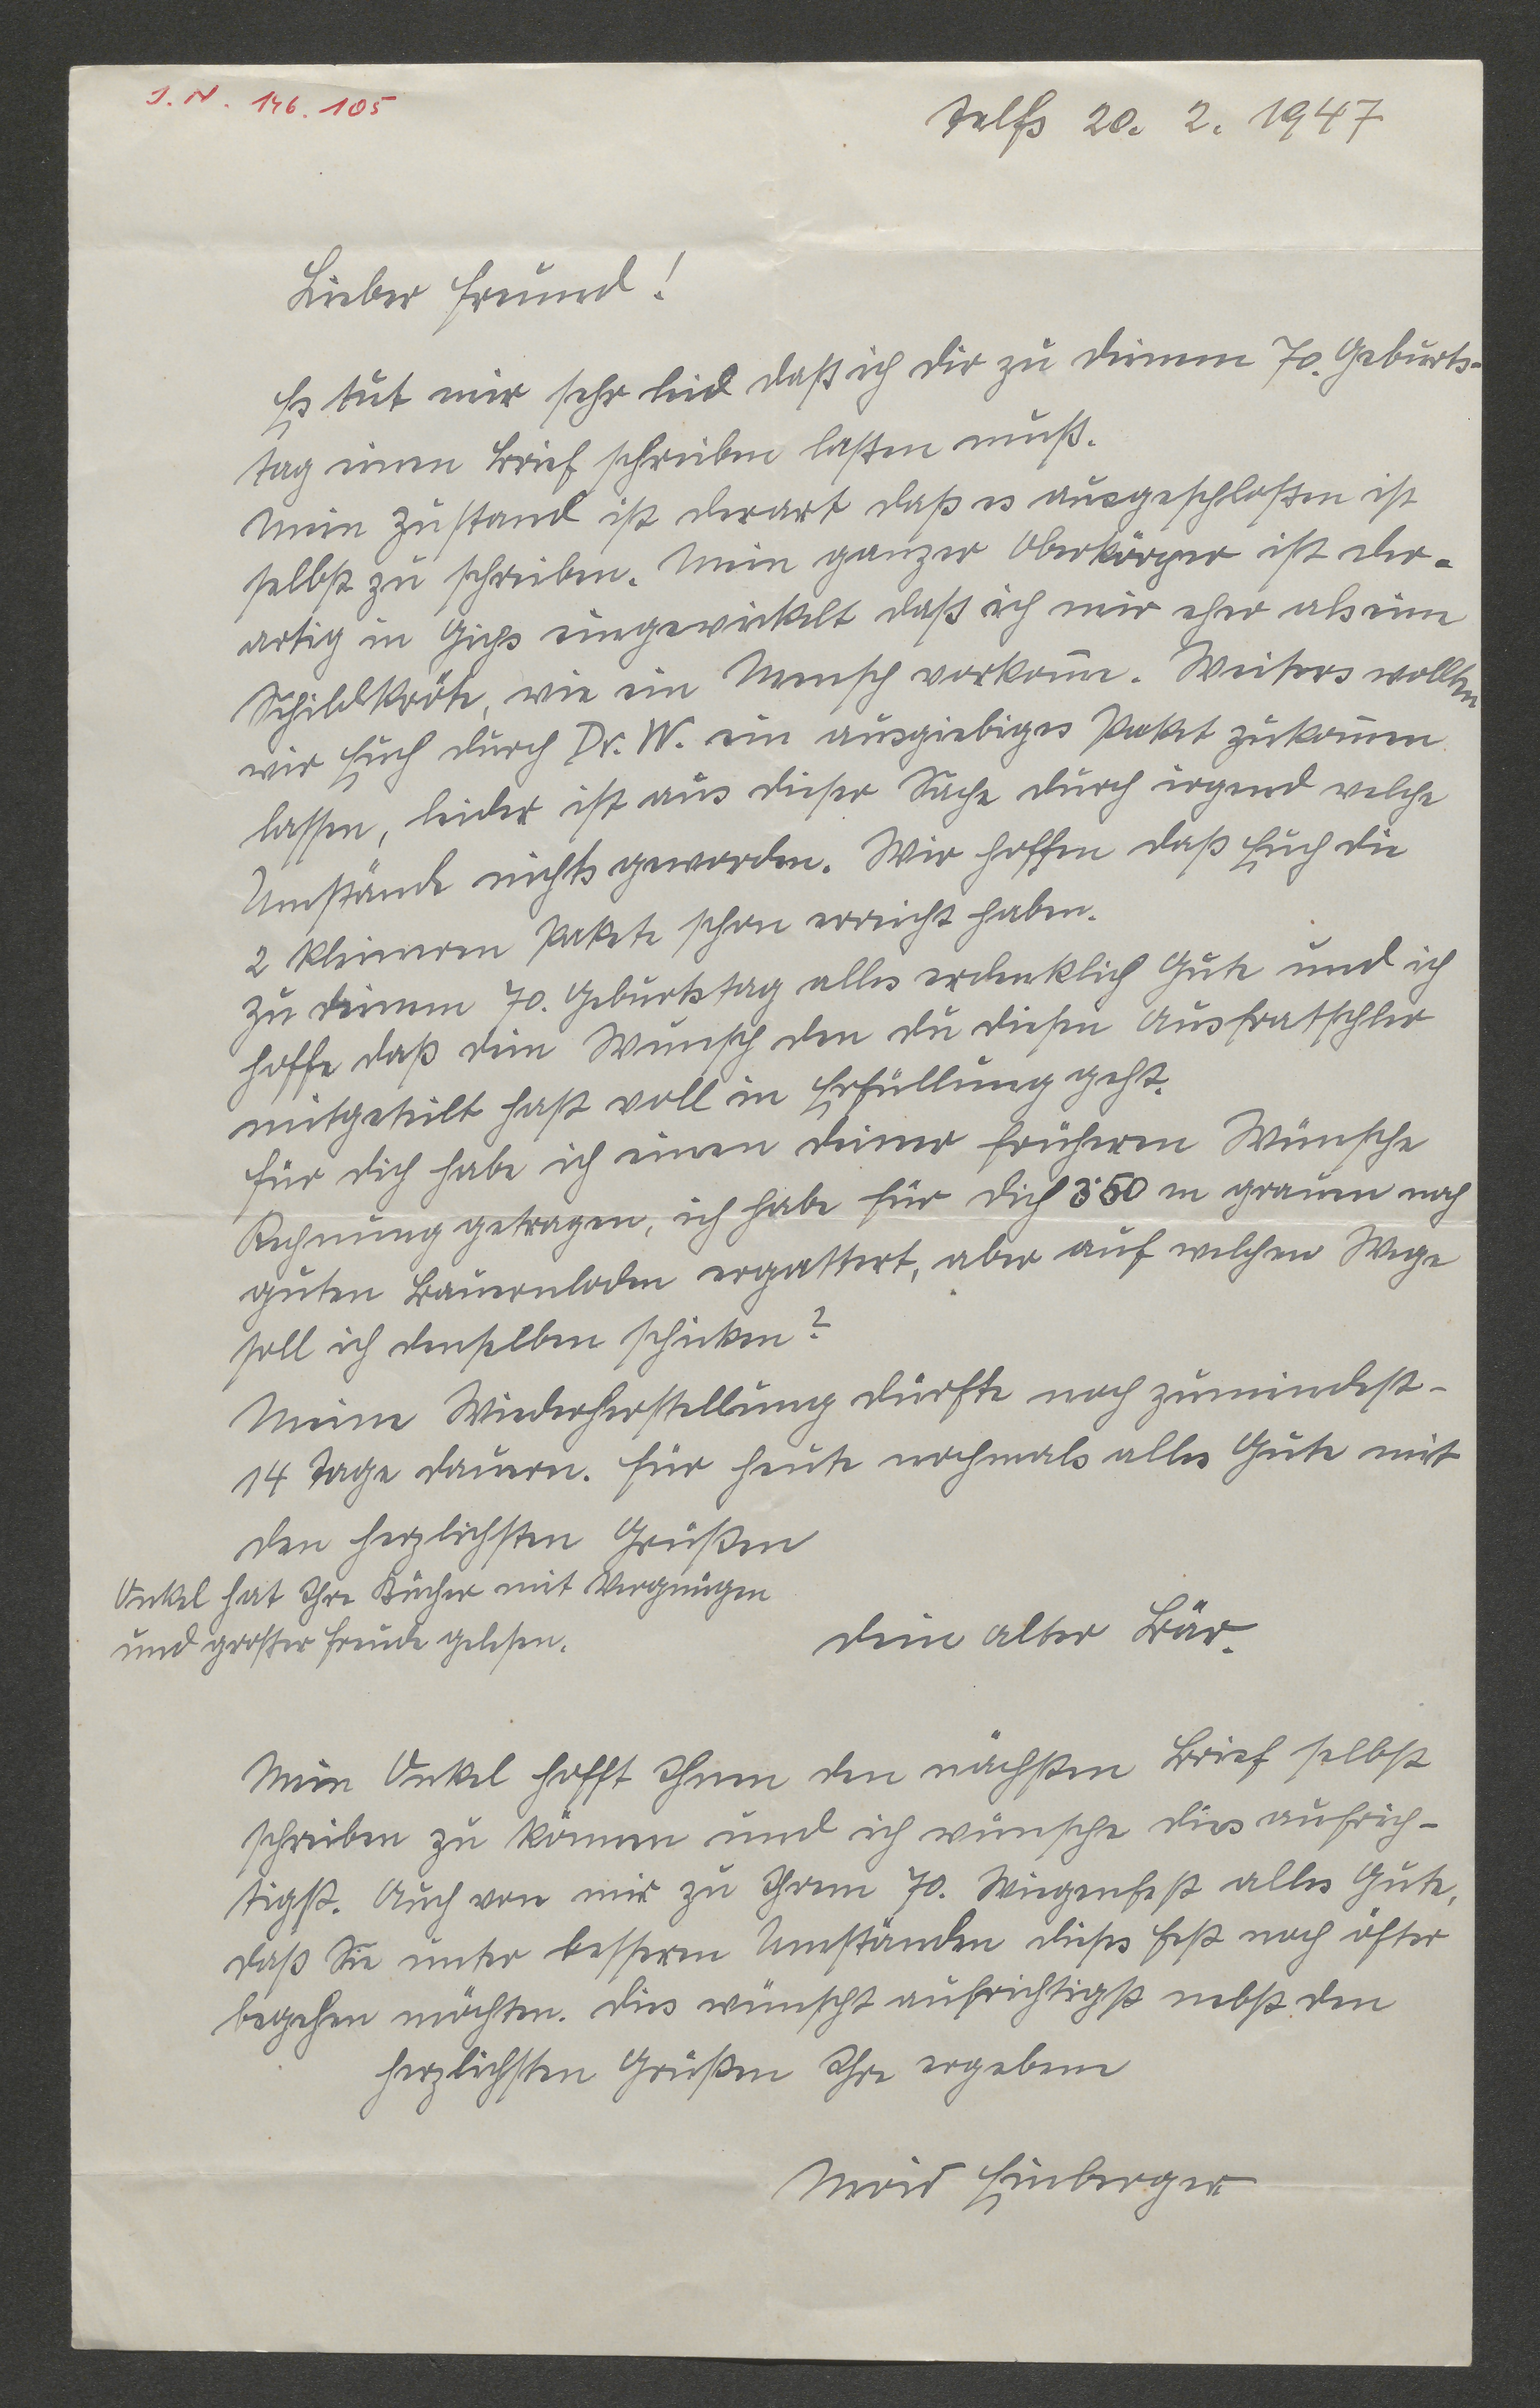 I. N. 146.105
Telfs 20. 2. 1947
Lieber Freund!
Es tut mir sehr leid daß ich dir zu deinem 70. Geburts-
tag einen Brief schreiben laßen muß.
Mein Zustand ist derart daß es ausgeschloßen ist
selbst zu schreiben. Mein ganzer Oberkörper ist der-
artig in Gips eingewickelt daß ich mir eher als eine
Schildkröte, wie ein Mensch vorkom̅e. Weiters wollten
wir Euch durch Dr. W. ein ausgiebiges Paket zukom̅en
lassen, leider ist aus dieser Sache durch irgend welche
Umstände nichts geworden. Wir hoffen daß Euch die
2 kleineren Pakete schon erreicht haben.
Zu deinem 70. Geburtstag alles erdenklich Gute und ich
hoffe daß dein Wunsch den du diesen Ausfratschler
mitgeteilt hast voll in Erfüllung geht.
Für dich habe ich einen deiner früheren Wünsche
Rechnung getragen, ich habe für dich 3·50 m grauen noch
guten Bauernloden ergattert, aber auf welchen Wege
soll ich denselben schicken?
Meine Wiederherstellung dürfte noch zumindest-
14 Tage dauern. Für heute nochmals alles Gute mit
den herzlichsten Grüßen
Onkel hat Ihre Bücher mit Vergnügen
und großer Freude gelesen.
dein alter Bär.
Mein Onkel hofft Ihnen den nächsten Brief selbst
schreiben zu können und ich wünsche dies aufrich-
tigst. Auch von mir zu Ihrem 70. Wiegenfest alles Gute,
daß Sie unter besseren Umständen dieses Fest noch öfter
begehen möchten. Dies wünscht aufrichtigst nebst den
herzlichsten Grüßen Ihre ergebene
Moid Einberger